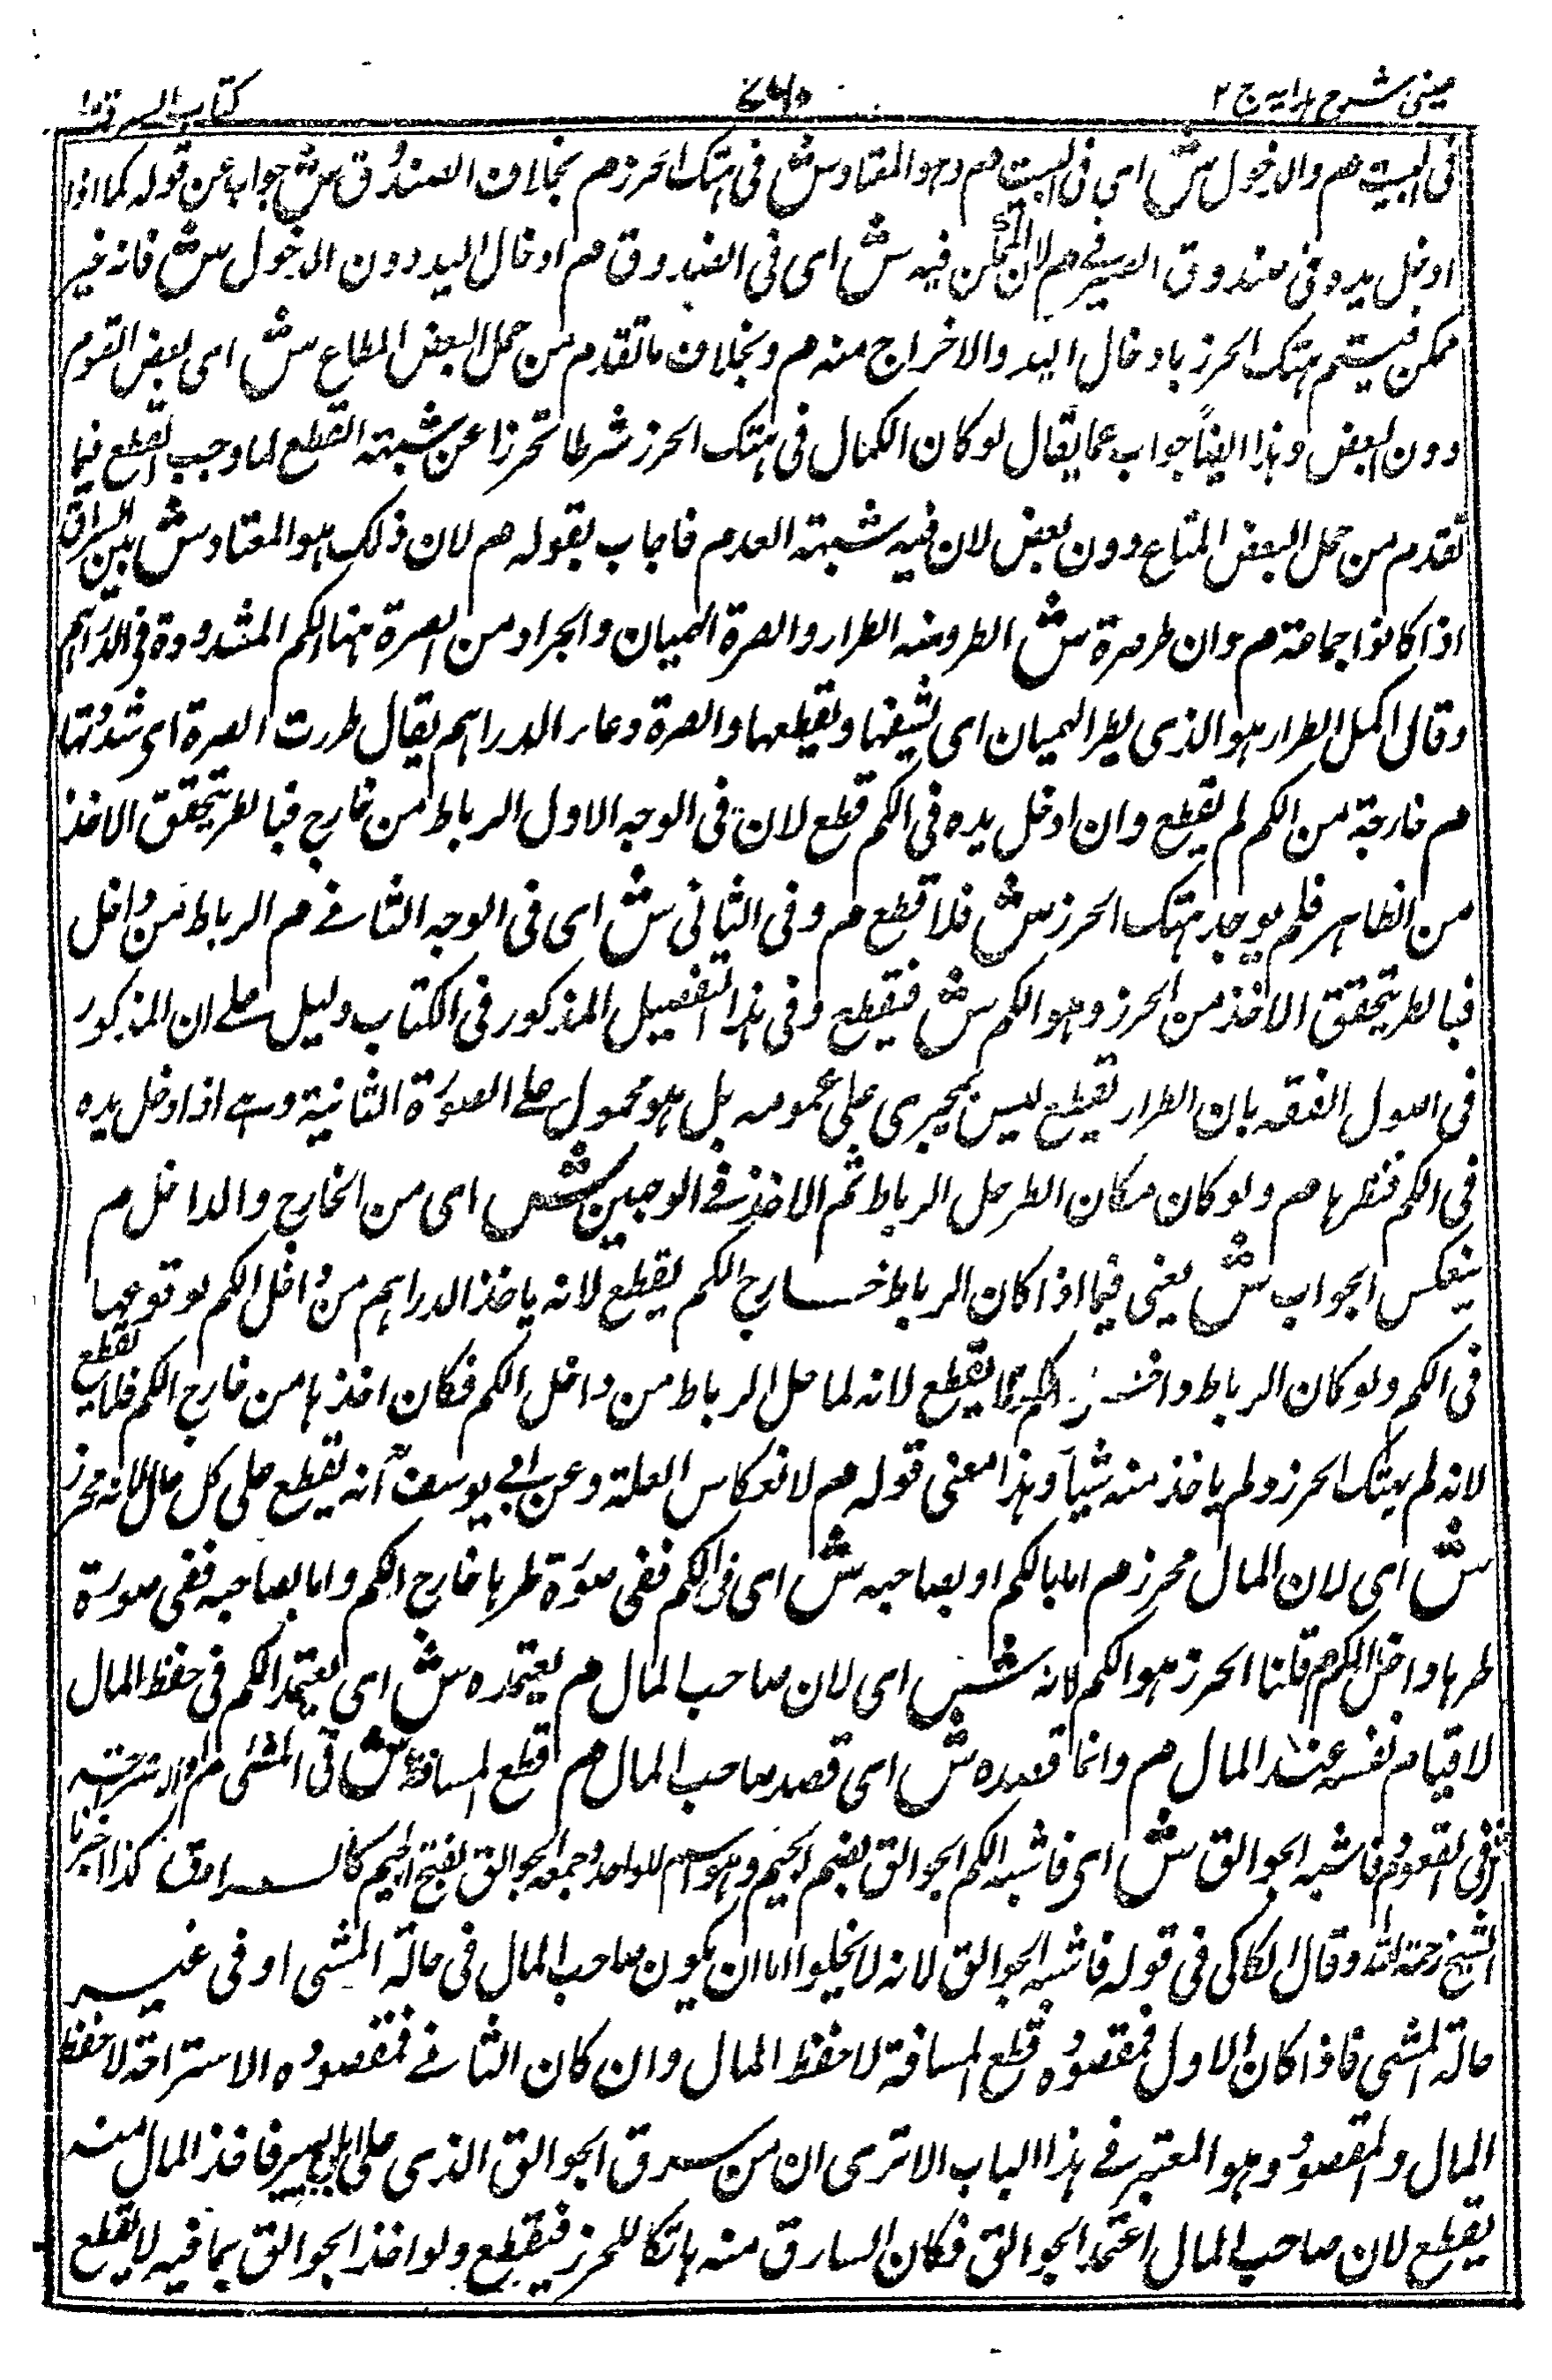 عینی شرح هدایه ج ۲
كتاب السرقة
فى البيت م والدخول ش اى فى البيت م وهو المعتاد ش فى هتك الحرز م بخلاف الصندوق ش جواب عن قوله كما اذا
ادخل يده فى صندوق الصيرفى م لان الممكن فيه ش اى فى الصندوق م ادخال اليد دون الدخول ش فانه غير
ممكن فيتم هتك الحرز بادخال اليد والاخراج منه م وبخلاف ما تقدم من حمل البعض المتاع ش اى بعض القوم
دون البعض وهذا ايضاً جواب عما يقال لو كان الكمال فى هتك الحرز شرطا تحرزا عن شبهة القطع لما وجب القطع فيما
تقدم من حمل البعض المتاع دون بعض لان فيه شبهة العدم فاجاب بقوله م لان ذلك هو المعتاد ش بين السراق
اذا كانوا جماعة م وان طر صرة ش الطر ومنه الطرار والصرة الهميان والمراد من الصرة ههنا الكم المشدودة فى الدراهم
وقال اكمل الطرار هو الذى يطر الهميان اى يشقها ويقطعها والصرة وعاء الدراهم يقال طررت الصرة اى شددتها
م خارجة من الكم لم يقطع وان ادخل يده فى الكم قطع لان فى الوجه الاول الرباط من خارج فبالطر يتحقق الاخذ
من الظاهر فلم يوجد هتك الحرز ش فلا قطع م وفى الثانى ش اى فى الوجه الثانى م الرباط من داخل
فبالطر يتحقق الاخذ من الحرز وهو الكم ش فيقطع وفى هذا التفصيل المذكور فى الكتاب دليل على ان المذكور
فى اصول الفقه بان الطرار يقطع ليس يجرى على عمومه بل هو محمول على الصورة الثانية وهى اذا ادخل يده
فى الكم فطرها م ولو كان مكان الطر حل الرباط ثم الاخذ فى الوجهين ش اى من الخارج والداخل م
ينعكس الجواب ش يعنى فيما اذا كان الرباط خارج الكم يقطع لانه ياخذ الدراهم من داخل الكم لوقوعها
فى الكم ولو كان الرباط داخل الكم لا يقطع لانه لما حل الرباط من داخل الكم فكان اخذها من خارج الكم فلا يقطع
لانه لم يهتك الحرز ولم ياخذ منه شيأ وهذا معنى قوله م لانعكاس العلة وعن ابى يوسفؒ انه يقطع على كل حال لانه محرز
ش اى لان المال محرز م اما بالكم او بصاحبه ش اى فى الكم ففى صورة طرها خارج الكم واما بصاحبه ففى صورة
طرها داخل الكم م قلنا الحرز هو الكم لانه ش اى لان صاحب المال م يعتمده ش اى يعتمد الكم فى حفظ المال
لا قيام نفسه عند المال م وانما قصده ش اى قصد صاحب المال م قطع المسافة ش فى المشى م او الاستراحة
ش فى القعود م فاشبه الجوالق ش اى فاشبه الكم الجوالق بضم الجيم وهو اسم للواحد وجمعه الجوالق بفتح الجيم كالسرادق كذا اخبرنا
الشيخ رحمة الله وقال الكاكى فى قوله فاشبه الجوالق لانه لا يخلوا اما ان يكون صاحب المال فى حالة المشى او فى غير
حالة المشى فاذا كان الاول فمقصوده قطع المسافة لا حفظ المال وان كان الثانى فمقصوده الاستراحة لا حفظ
المال والمقصود وهو المعتبر فى هذا الباب الا ترى ان من سرق الجوالق الذى على ابل يسير فاخذ المال منه
يقطع لان صاحب المال اعتمد الجوالق فكان السارق منه هاتكا للحرز فيقطع ولو اخذ الجوالق بما فيه لا يقطع